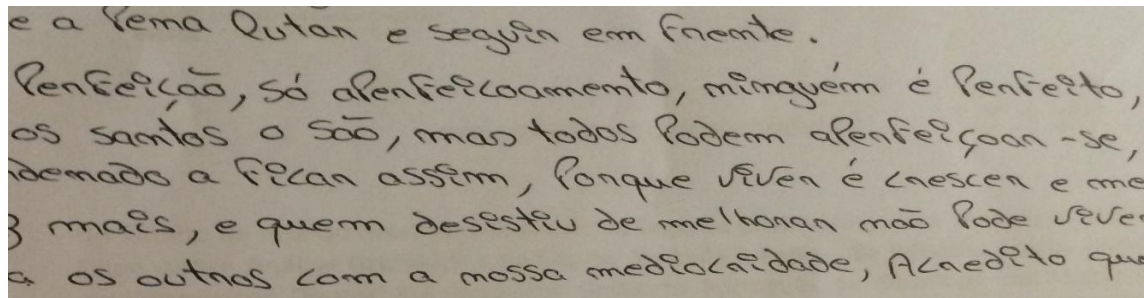 e a Pena lutar e seguir em frente.
Perfeição, só aperfeicoamento, ninguém é Perfeito,
os santos o são, mas todos Podem aperfeiçoar-se,
demado a ficar assim, Porque viver é crescer e me
mais, e quem desistiu de melhorar não Pode vive
os outros com a nossa mediocridade, Acredito que